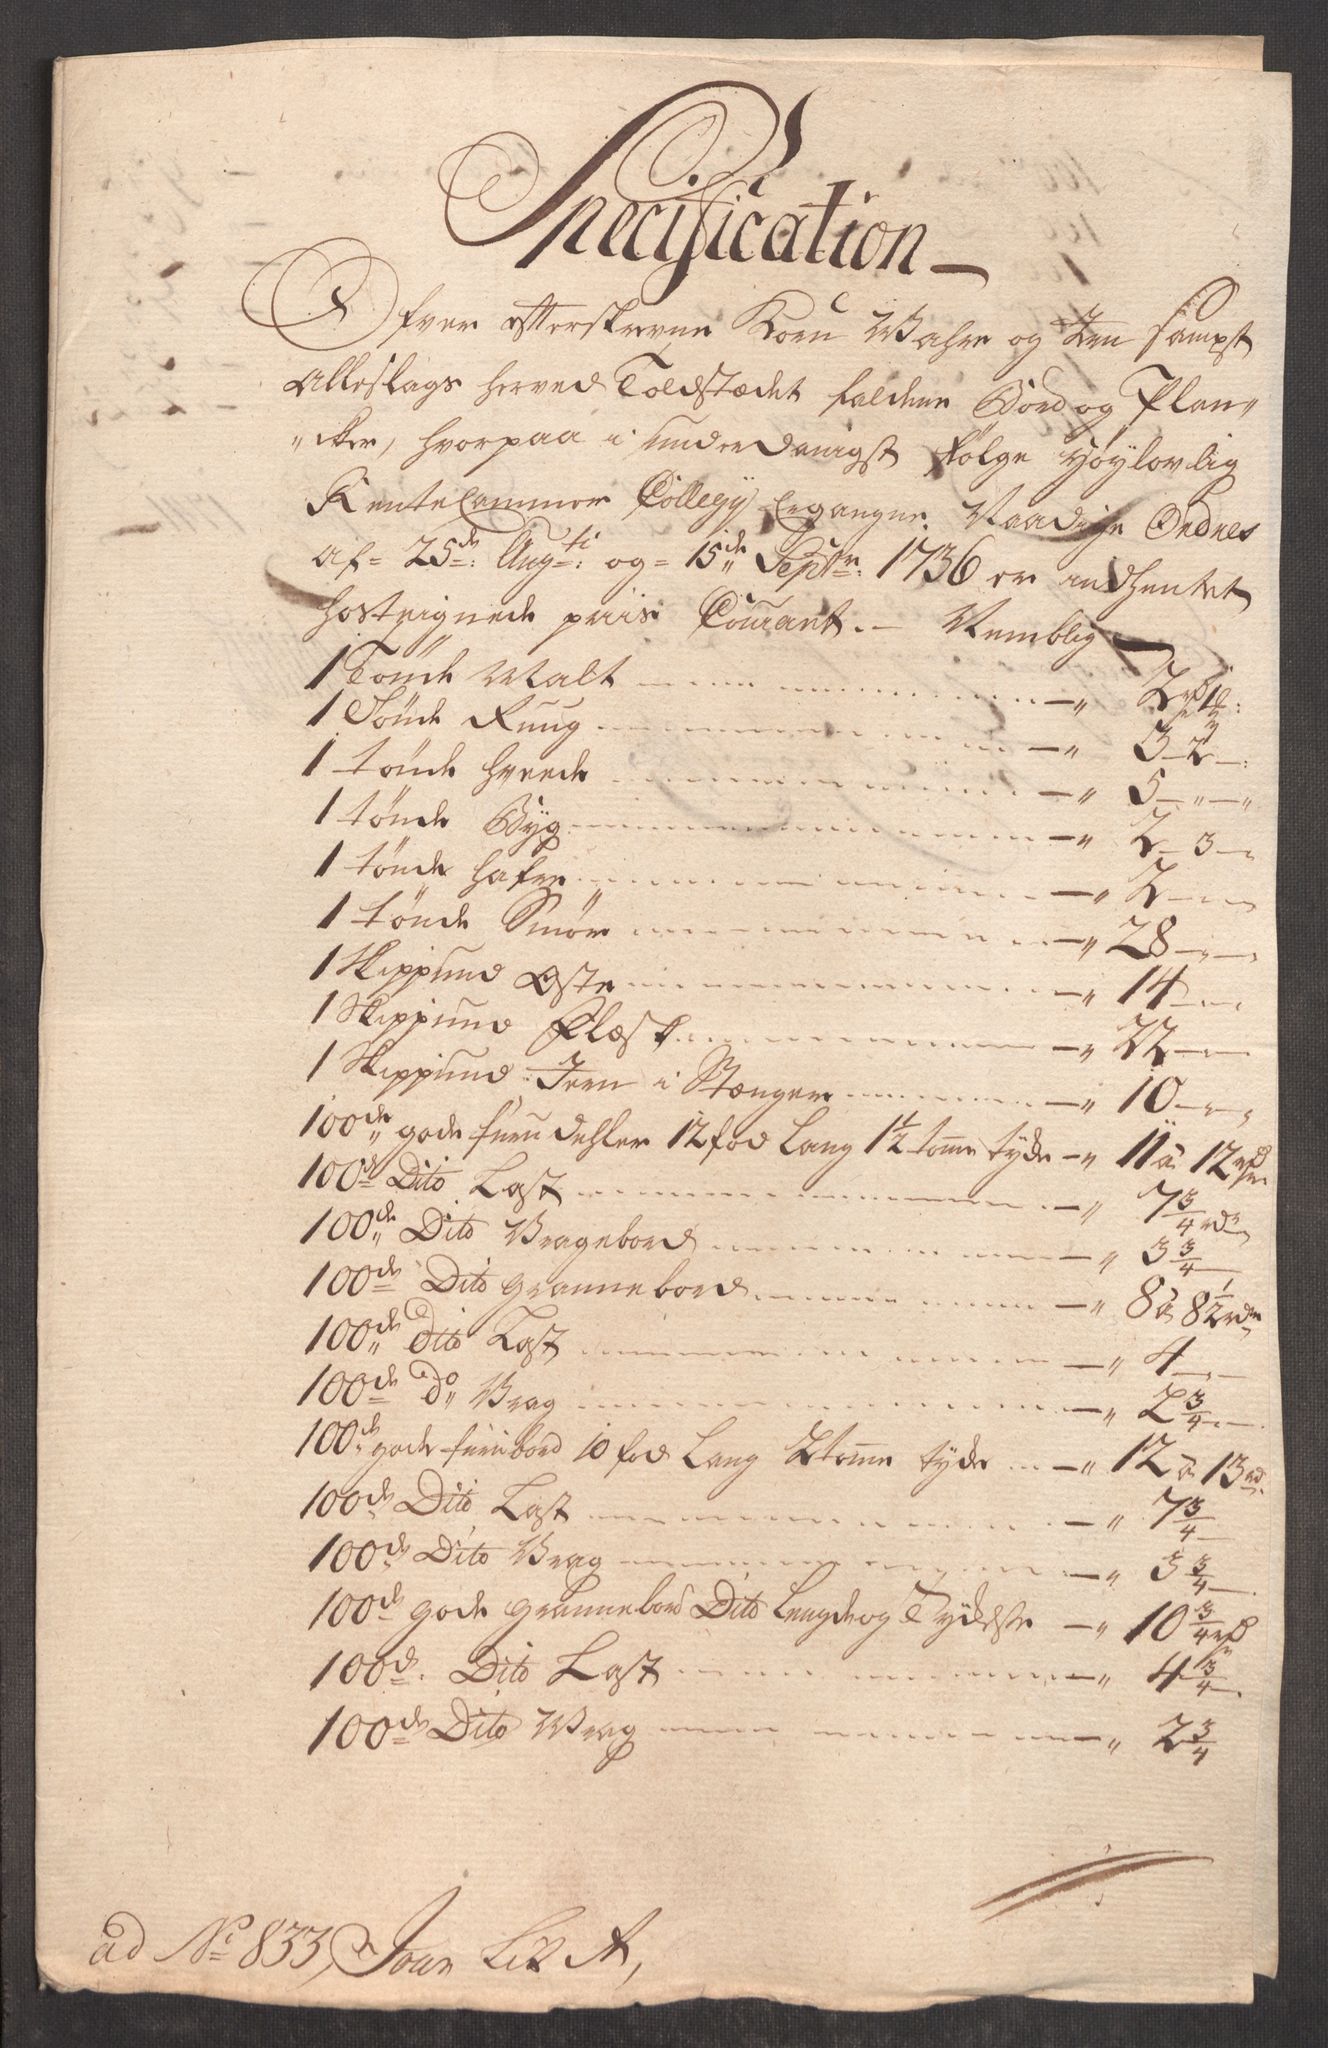 Specification
Ofver efterskrevne Korn Wahre og Jern sampt
Alleslags herved Toldstædet faldene Bord og Plan„
„cker, hvorpaa i underdanigst følge Høylovlig
RenteCammer Collegij Ergangne Naadige Ordres
Af 25de: Augti: og 15de Septr: 1736 er indhentet
hosteignede priis Courant. — Nemblig
1 Tønde Malt — „ 2 rd
1 Tønde Ruug — „ 3 - 2 -
1 tønde hvede — „ 5 - „ - „
1 tønde Byg — „ 2 - 3 -
1 tønde hafre — „ 2 - -
1 tønde Smør — „ 28 - -
1 Skippund Oste — „ 14 - -
1 Skippund Flæsk — „ 22 - -
1 Skippund Jern i Stænger — „ 10 - -
100de gode furu dehler 12 fod Lang 1½ tome tyde — „ 11 à 12 rd
100de Dito Last — „ 7¾ rd
100de Dito Vragebord — „ 3¾
100de Dito grannebord — „ 8 à 8½ rd
100de Dito Last — „ 4 -
100de Do Vrag — „ 2¾ -
100de gode furubord 10 fod Lang 2 tome tyde — „ 12 à 13 rd
100de Dito Last — „ 7¾
100de Dito Vrag — „ 3¾
100de gode grannebord Dito Lengde og Tydelse — „ 10¾ rd
100de Dito Last — „ 4¾
100de Dito Vrag — „ 2¾
ad No 833, Lit A,